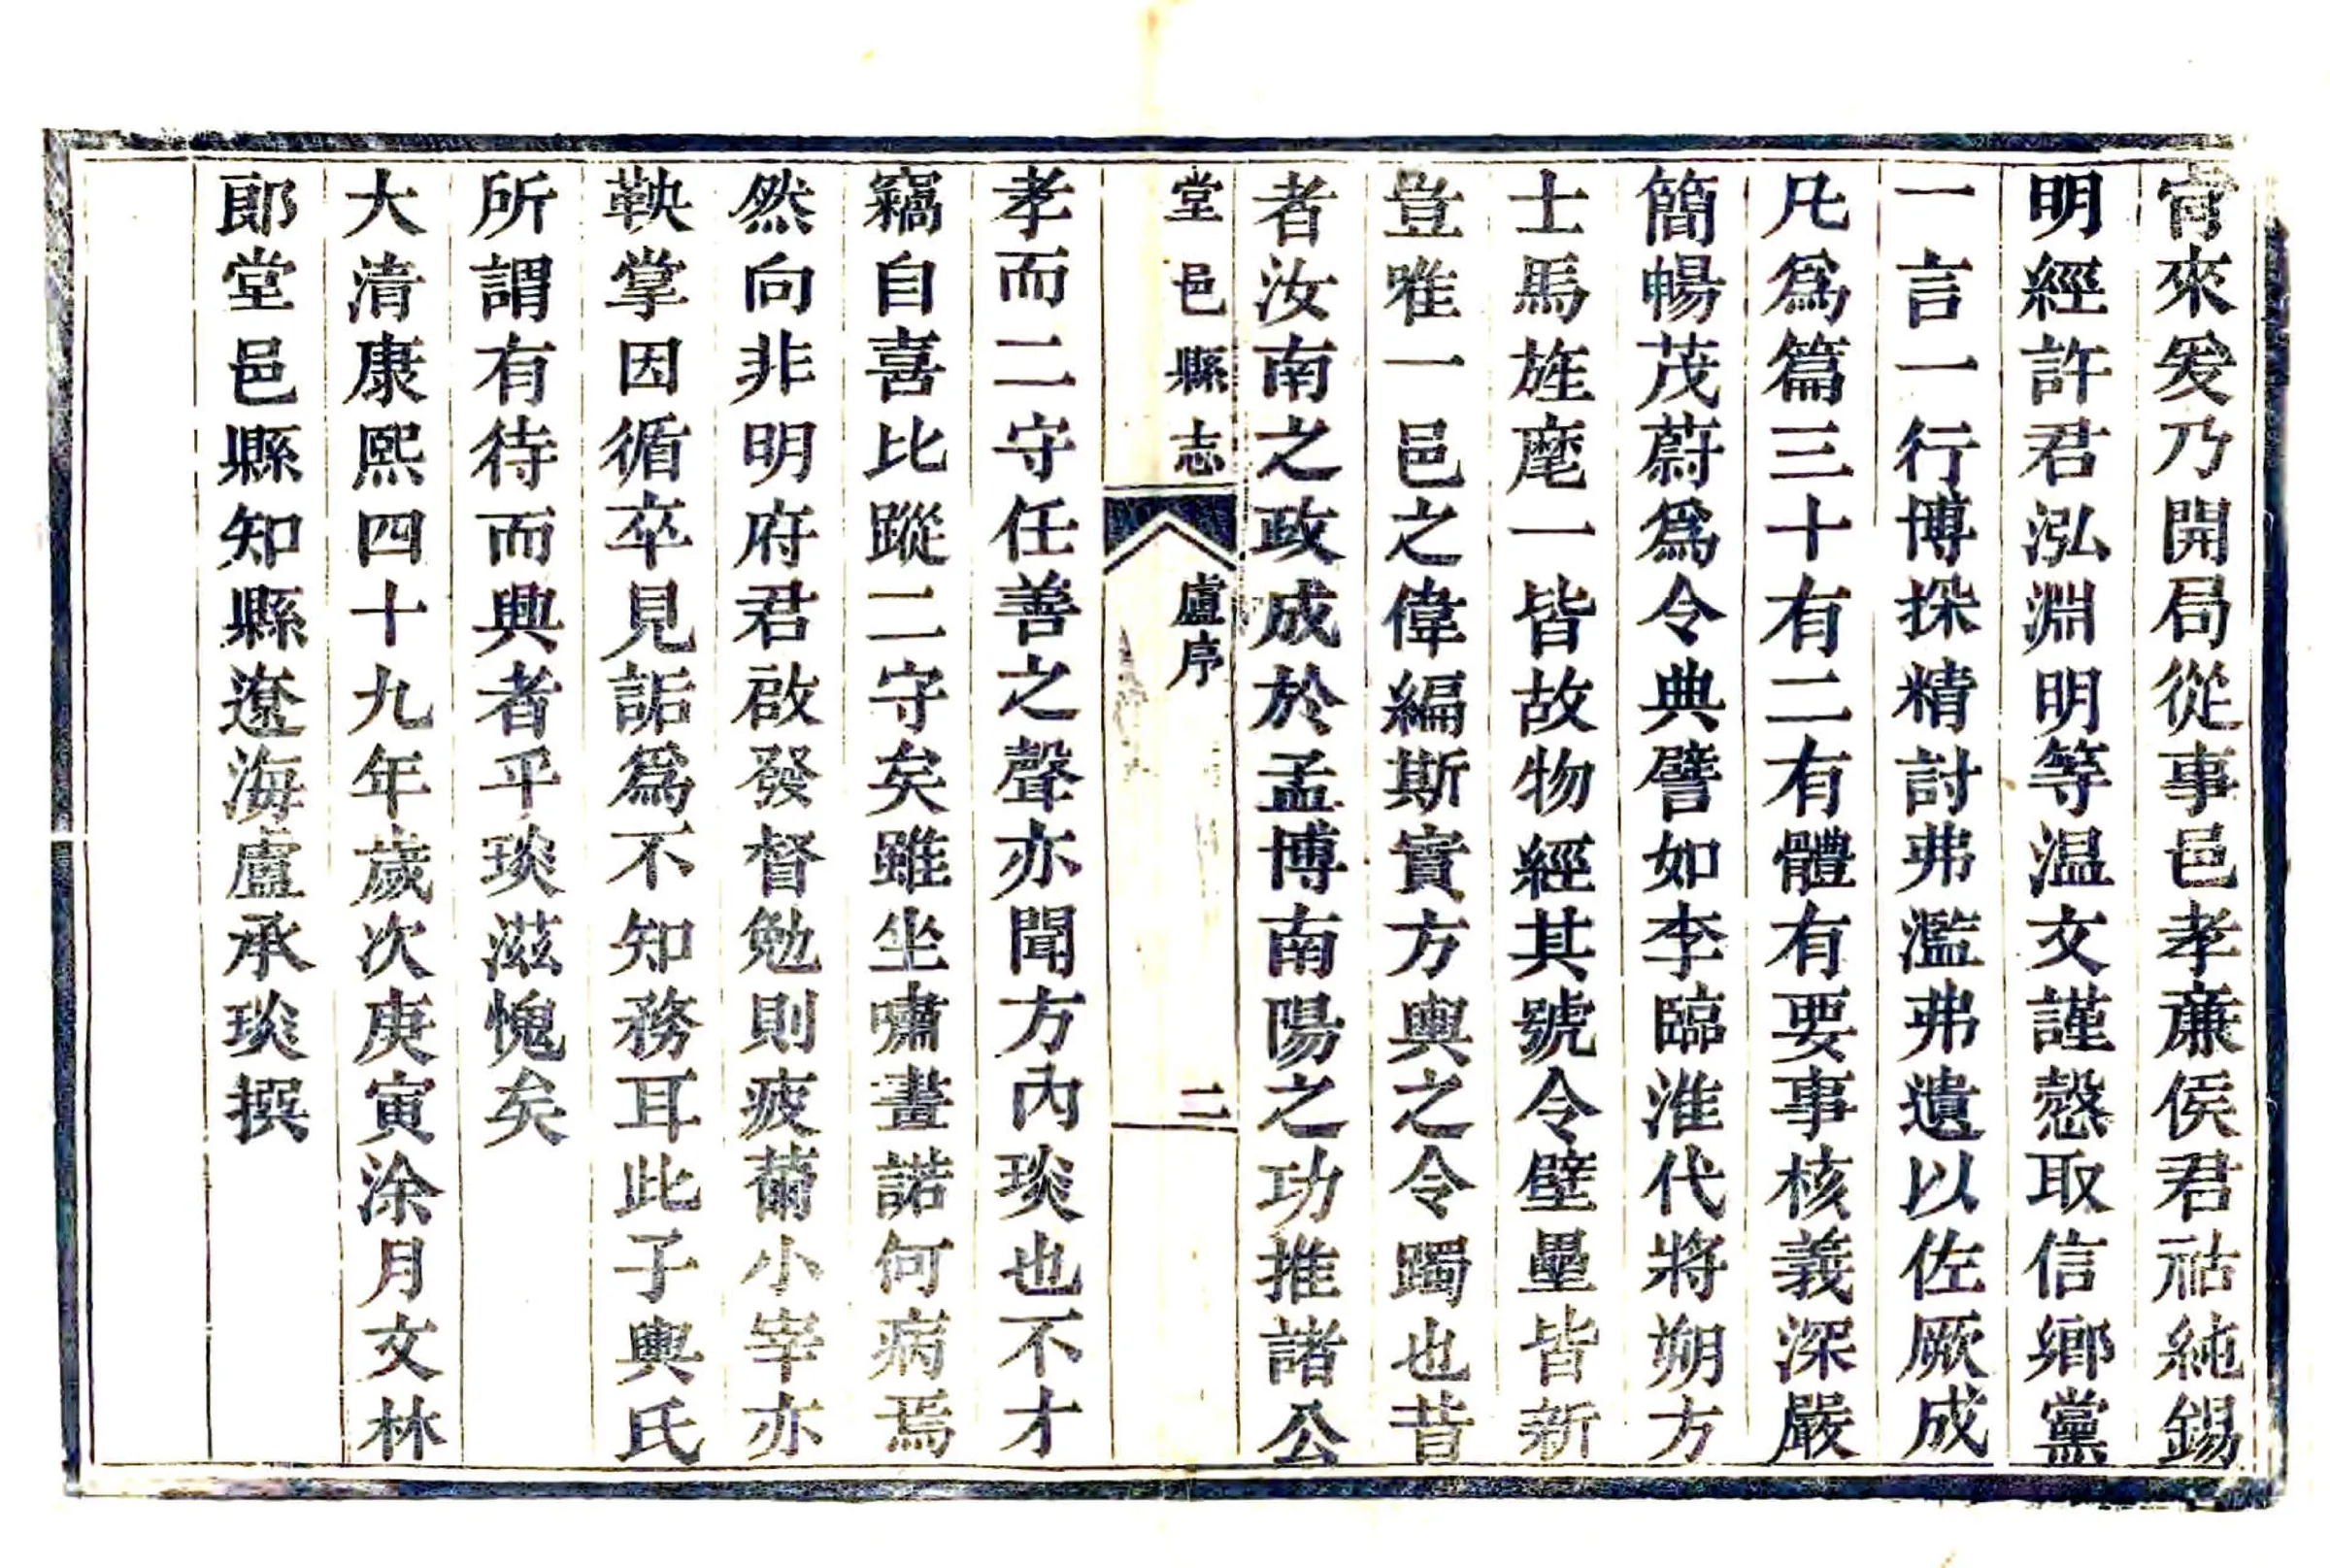 肻來爰乃開局從事邑孝亷侯君祜純錫
明經許君泓淵明等温文謹慤取信鄉黨
一言一行博採精討弗濫弗遺以佐厥成
凡爲篇三十有二有體有要事核義深嚴
簡暢茂蔚爲令典譬如李臨淮代將朔方
士馬旌麾一皆故物經其號令壁壘皆新
豈唯一邑之偉編斯實方輿之令躅也昔
者汝南之政成於孟博南陽之功推諸公
堂邑縣志
盧序
二
孝而二守任善之聲亦聞方內琰也不才
竊自喜比蹤二守矣雖坐嘯畫諾何病焉
然向非明府君啟發督勉則疲薾小宰亦
鞅掌因循卒見詬爲不知務耳此子輿氏
所謂有待而興者乎琰滋愧矣
大清康熙四十九年歲次庚寅涂月文林
郎堂邑縣知縣遼海盧承琰撰